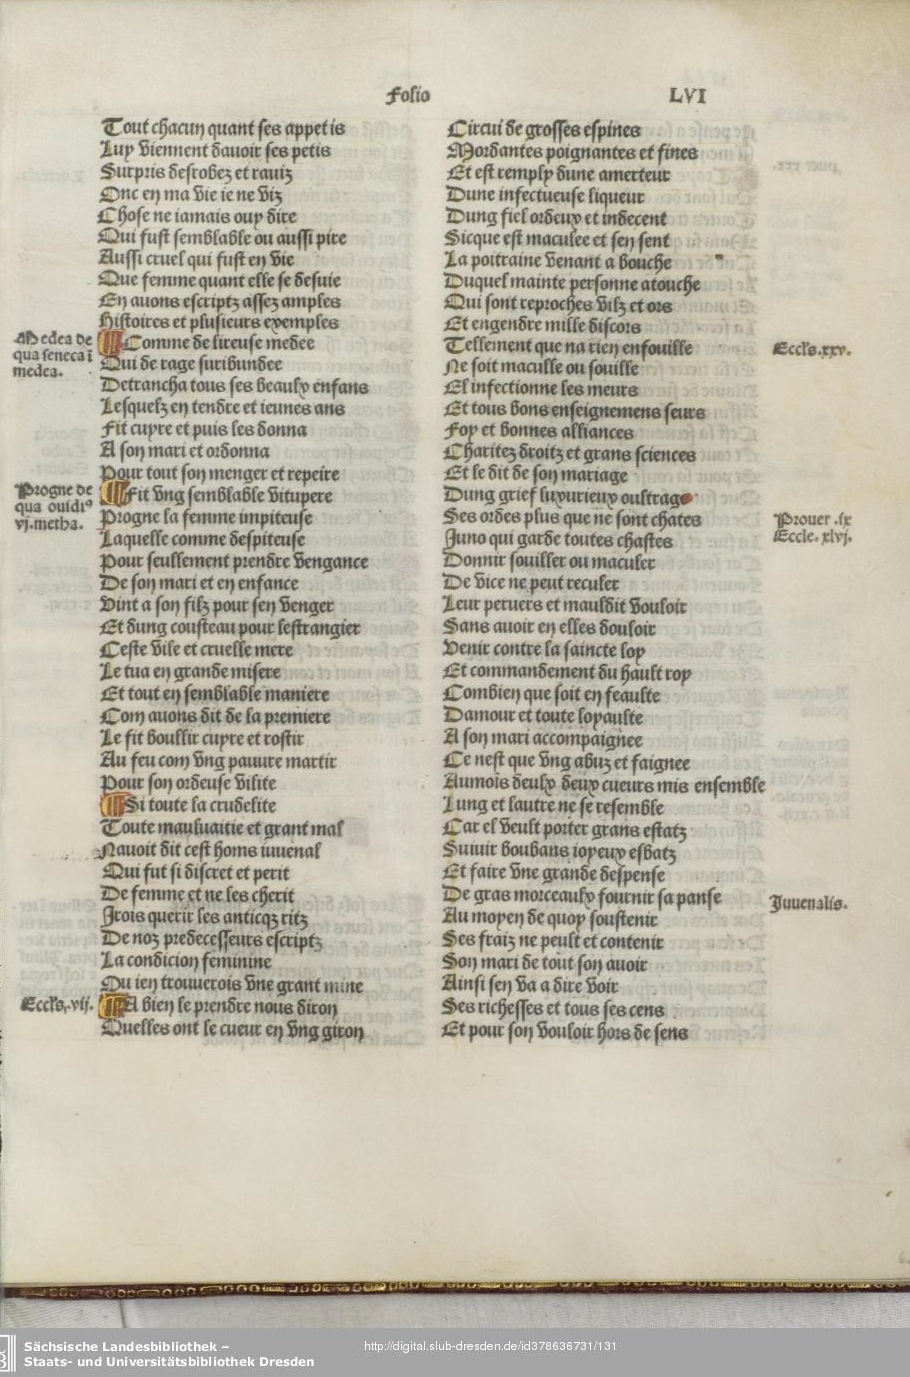 Folio LVI
Tout chacun quant ses appetis
Luy viennent davoir ses petis
Surpris desrobez et raviz
Onc en ma vie ie ne viz
Chose ne iamais ouy dire
Qui fust semblable ou aussi pire
Aussi cruel qui fust en vie
Que femme quant elle se desvie
En avons escriptz assez amples
Histoires et plusieurs exemples
Medea de
qua seneca ī
medea.
Comme de lireuse medee
Qui de rage furibundee
Detrancha tous ses beaulx enfans
Lesquelz en tendre et ieunes ans
Fit cuyre et puis les donna
A son mari et ordonna
Pour tout son menger et repeire
Progne de
qua ouidiꝰ
vj.metha.
Fit vng semblable vitupere
Progne la femme impiteuse
Laquelle comme despiteuse
Pour seullement prendre vengance
De son mari et en enfance
Vint a son filz pour sen venger
Et dung cousteau pour lestrangier
Ceste vile et cruelle mere
Le tua en grande misere
Et tout en semblable maniere
Com avons dit de la premiere
Le fit boullir cuyre et rostir
Au feu com vng pauvre martir
Pour son ordeuse vilite
Si toute la crudelite
Toute mauluaitie et grant mal
Navoit dit cest homs iuvenal
Qui fut si discret et perit
De femme et ne les cherit
Irois querir les anticqz ritz
De noz predecesseurs escriptz
La condicion feminine
Ou ien trouverois vne grant mine
Eccl's.vij.
A bien le prendre nous diron
Quelles ont le cueur en vng giron
Circui de grosses espines
Mordantes poignantes et fines
Et est remply dune amerteur
Dune infectueuse liqueur
Dung fiel ordeux et indecent
Sicque est maculee et sen sent
La poitraine venant a bouche
Duquel mainte personne atouche
Qui sont reproches vilz et ors
Et engendre mille discors
Tellement que na rien enfouille
Eccl's.xxv.
Ne soit maculle ou souille
El infectionne les meurs
Et tous bons enseignemens seurs
Foy et bonnes alliances
Charitez droitz et grans sciences
Et le dit de son mariage
Dung grief luxurieux oultrage
Ses ordes plus que ne sont chates
Prover .ix
Eccle. xlvj.
Juno qui garde toutes chastes
Donnir souiller ou maculer
De vice ne peut reculer
Leur pervers et mauldit vouloir
Sans avoir en elles douloir
Venir contre la saincte loy
Et commandement du hault roy
Combien que soit en feaulte
Damour et toute loyaulte
A son mari accompaignee
Ce nest que vng abuz et faignee
Aumois deulx deux cueurs mis ensemble
Lung et lautre ne se resemble
Car el veult porter grans estatz
Suivir boubans ioyeux esbatz
Et faire vne grande despense
De gras morceaulx fournir sa panse
Juvenalis.
Au moyen de quoy soustenir
Ses fraiz ne peult et contenir
Son mari de tout son avoir
Ainsi sen va a dire voir
Ses richesses et tous ses cens
Et pour son vouloir hors de sens
Sächsische Landesbibliothek –
Staats- und Universitätsbibliothek Dresden
http://digital.slub-dresden.de/id378636731/131